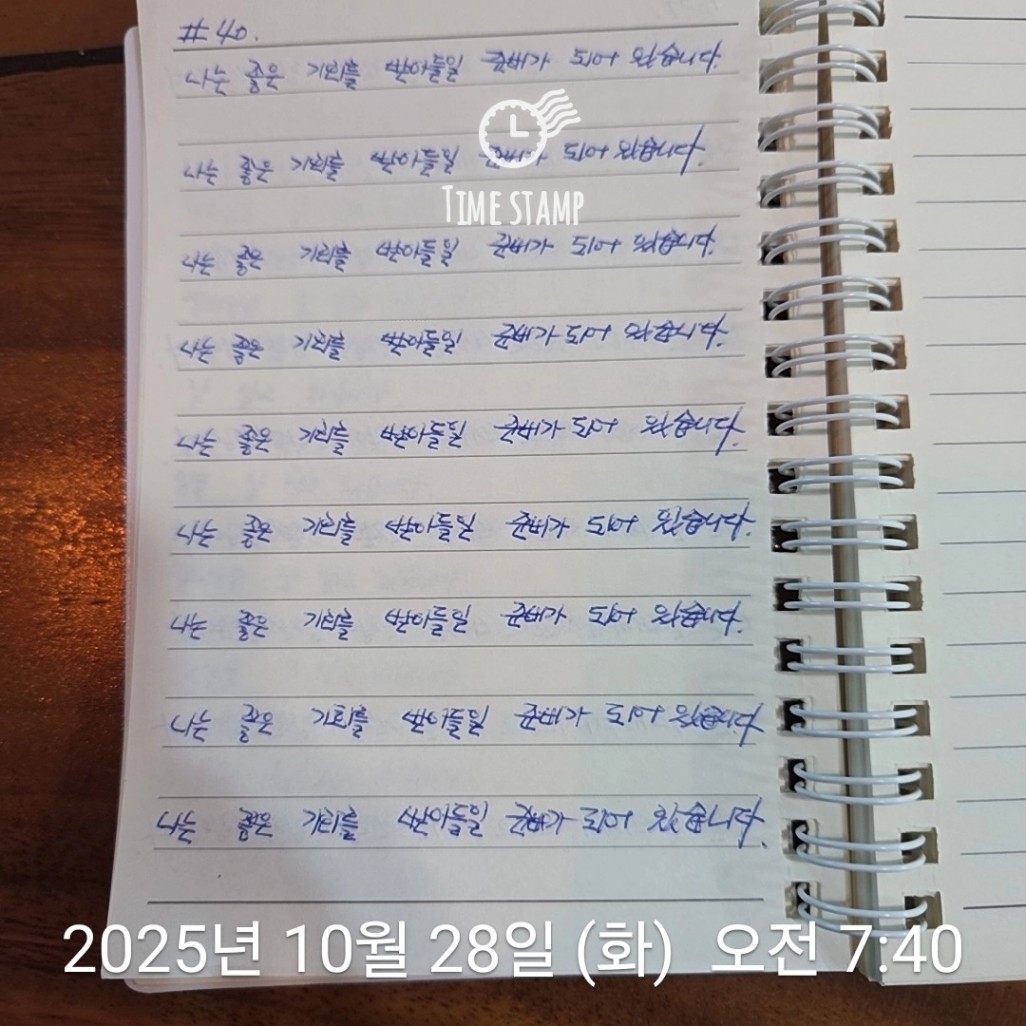 #40.
나는 좋은 기회를 받아들일 준비가 되어 있습니다.
나는 좋은 기회를 받아들일 준비가 되어 있습니다.
TIME STAMP
나는 좋은 기회를 받아들일 준비가 되어 있습니다.
나는 좋은 기회를 받아들일 준비가 되어 있습니다.
나는 좋은 기회를 받아들일 준비가 되어 있습니다.
나는 좋은 기회를 받아들일 준비가 되어 있습니다.
나는 좋은 기회를 받아들일 준비가 되어 있습니다.
나는 좋은 기회를 받아들일 준비가 되어 있습니다.
나는 좋은 기회를 받아들일 준비가 되어 있습니다.
2025년 10월 28일 (화) 오전 7:40